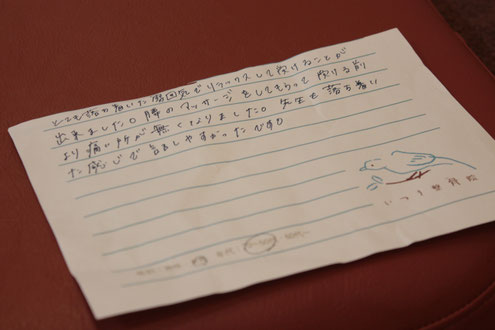 とても落ち着いた雰囲気でリラックスして受けることが
出来ました。腰のマッサージをしてもらって受ける前
より痛い所が無くなりました。先生も落ち着い
た感じで話しやすかったです。
いつき整骨院